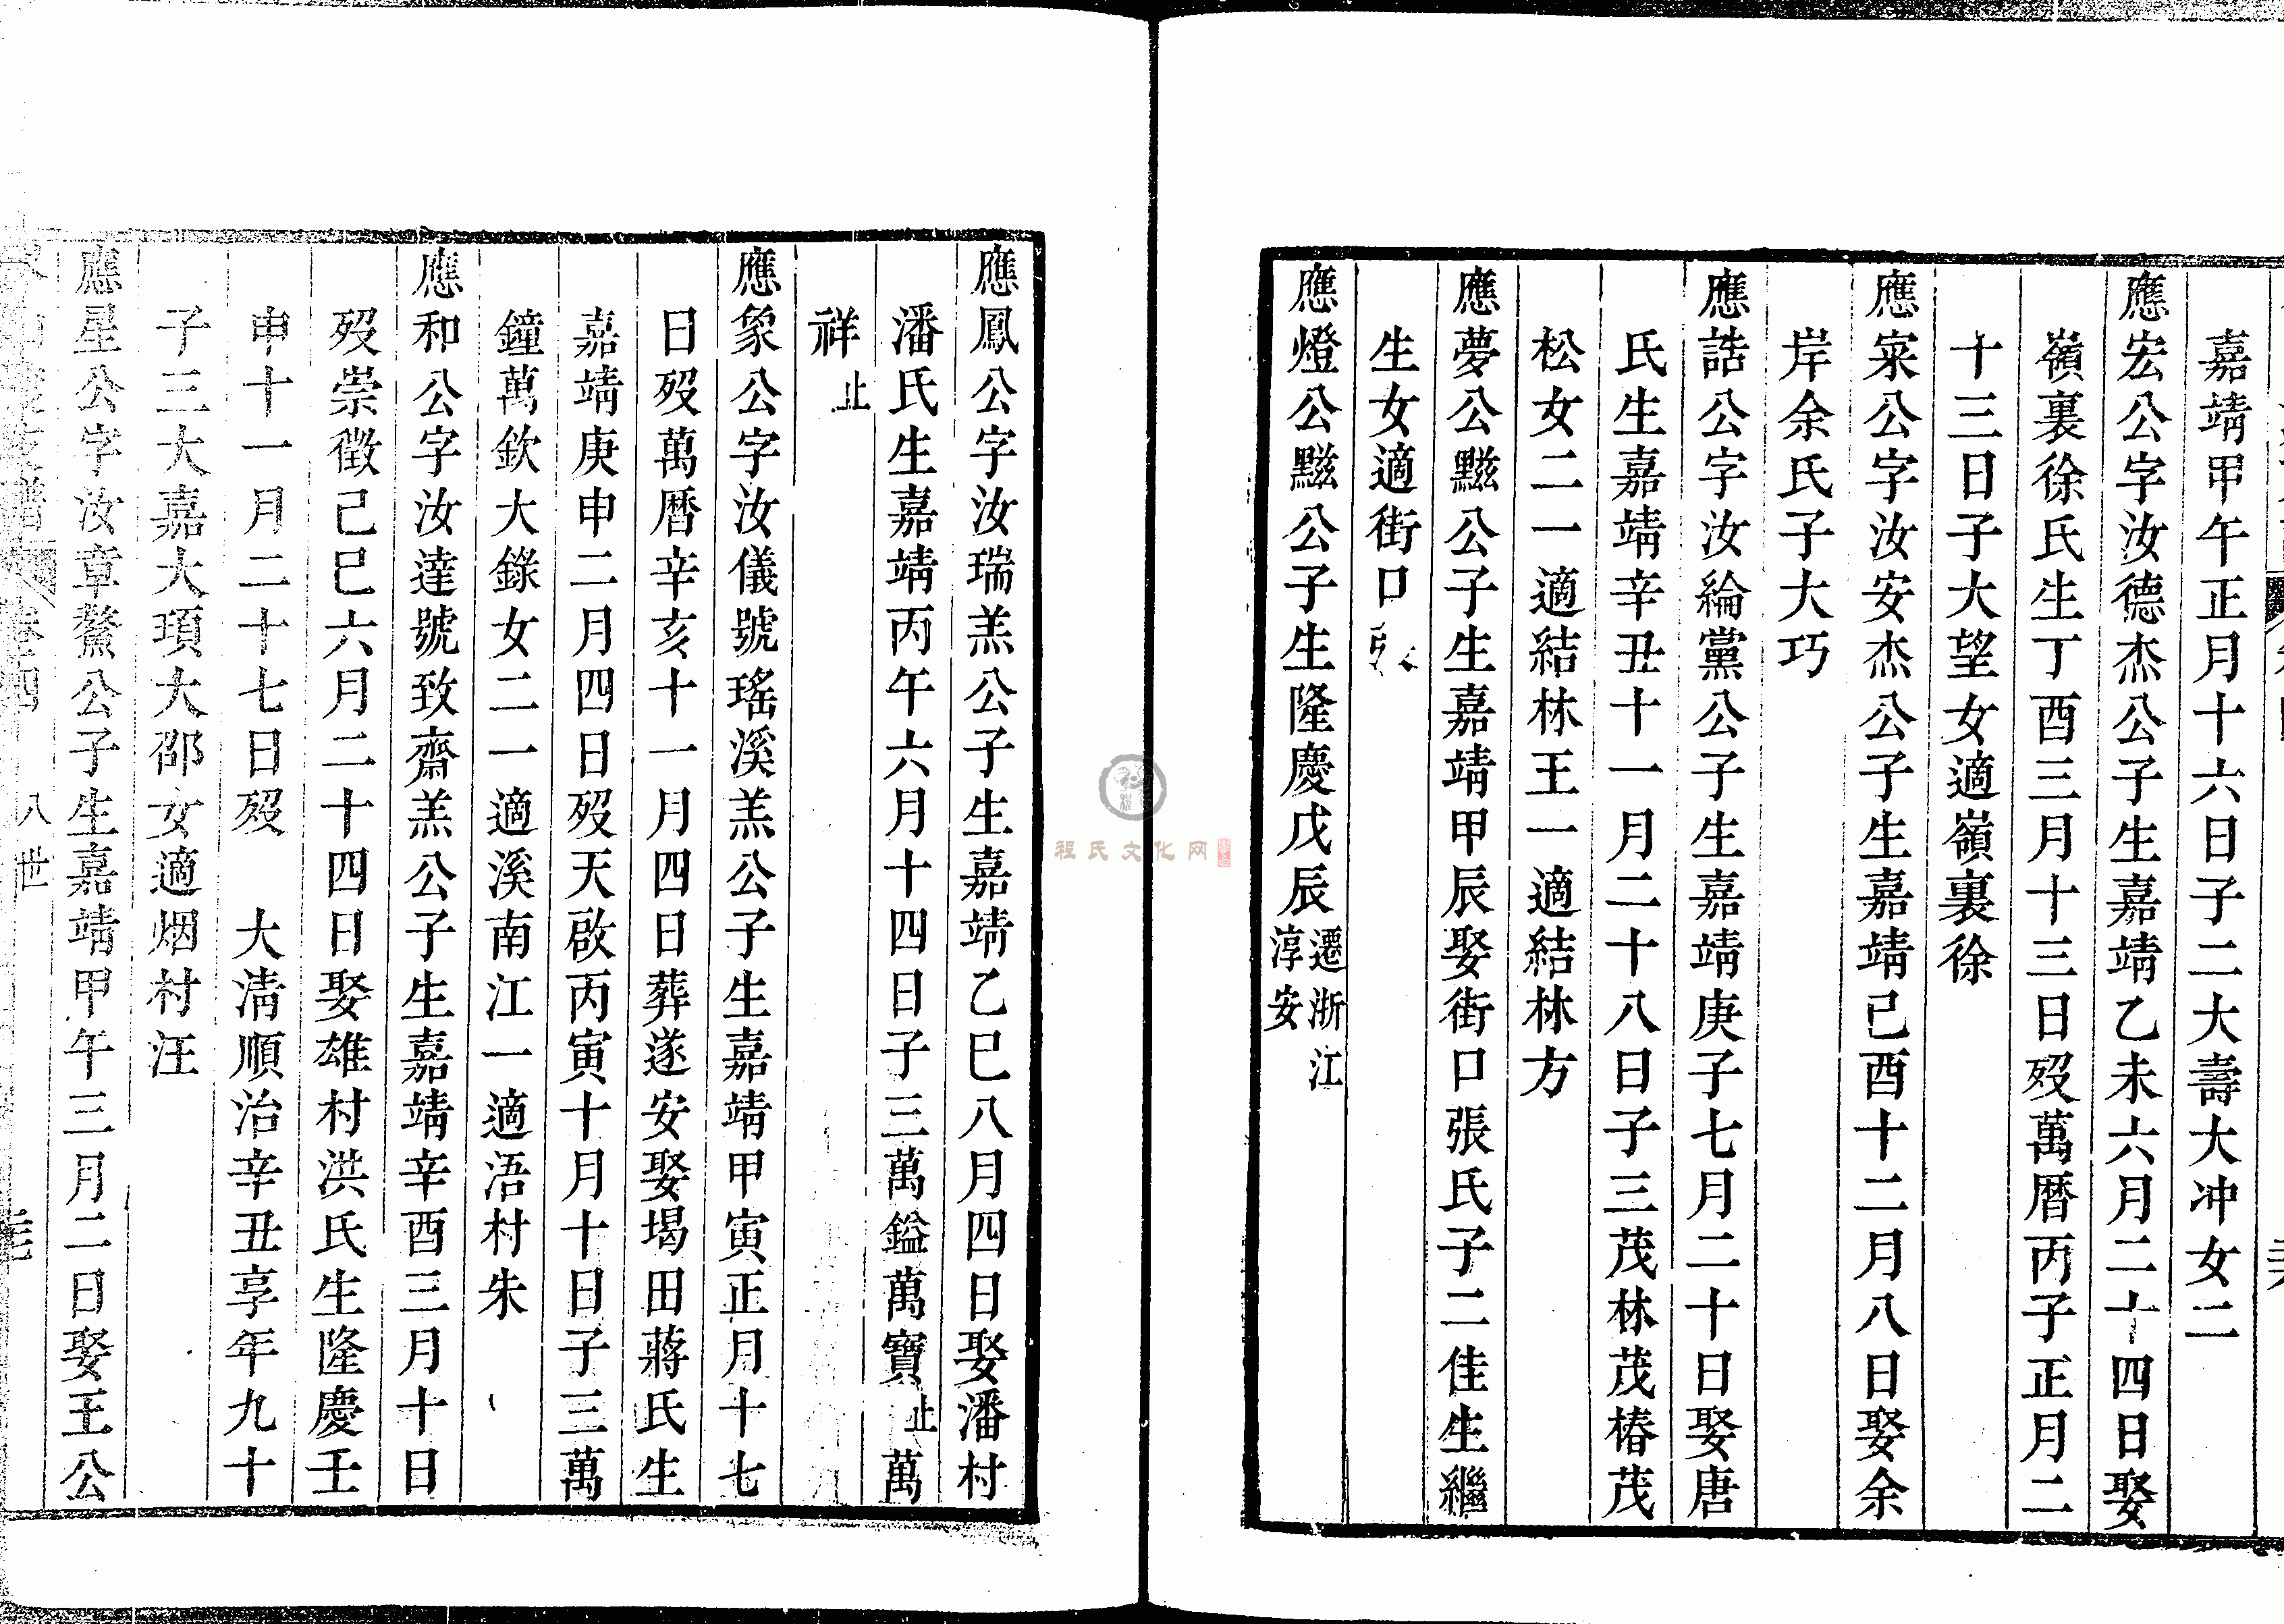 嘉靖甲午正月十六日子二大壽大冲女二
應宏公字汝德杰公子生嘉靖乙未六月二十四日娶
嶺裏徐氏生丁酉三月十三日歿萬曆丙子正月二
十三日子大望女適嶺裏徐
應寀公字汝安杰公子生嘉靖己酉十二月八日娶余
岸余氏子大巧
應誥公字汝綸黨公子生嘉靖庚子七月二十日娶唐
氏生嘉靖辛丑十一月二十八日子三茂林茂椿茂
松女二一適結林王一適結林方
應夢公黻公子生嘉靖甲辰娶街口張氏子二佳生繼
生女適街口
應燈公黻公子生隆慶戊辰遷浙江淳安
應鳳公字汝瑞羔公子生嘉靖乙巳八月四日娶潘村
潘氏生嘉靖丙午六月十四日子三萬鎰萬寶止萬
祥止
應象公字汝儀號瑤溪羔公子生嘉靖甲寅正月十七
日歿萬曆辛亥十一月四日葬遂安娶堨田蔣氏生
嘉靖庚申二月四日歿天啟丙寅十月十日子三萬
鐘萬欽大錄女二一適溪南江一適浯村朱
應和公字汝達號致齋羔公子生嘉靖辛酉三月十日
歿崇徵己巳六月二十四日娶雄村洪氏生隆慶壬
申十一月二十七日歿 大清順治辛丑享年九十
子三大嘉大項大邵女適烟村汪
應星公字汝章鰲公子生嘉靖甲午三月二日娶王公
卷四 八世
程氏文化网